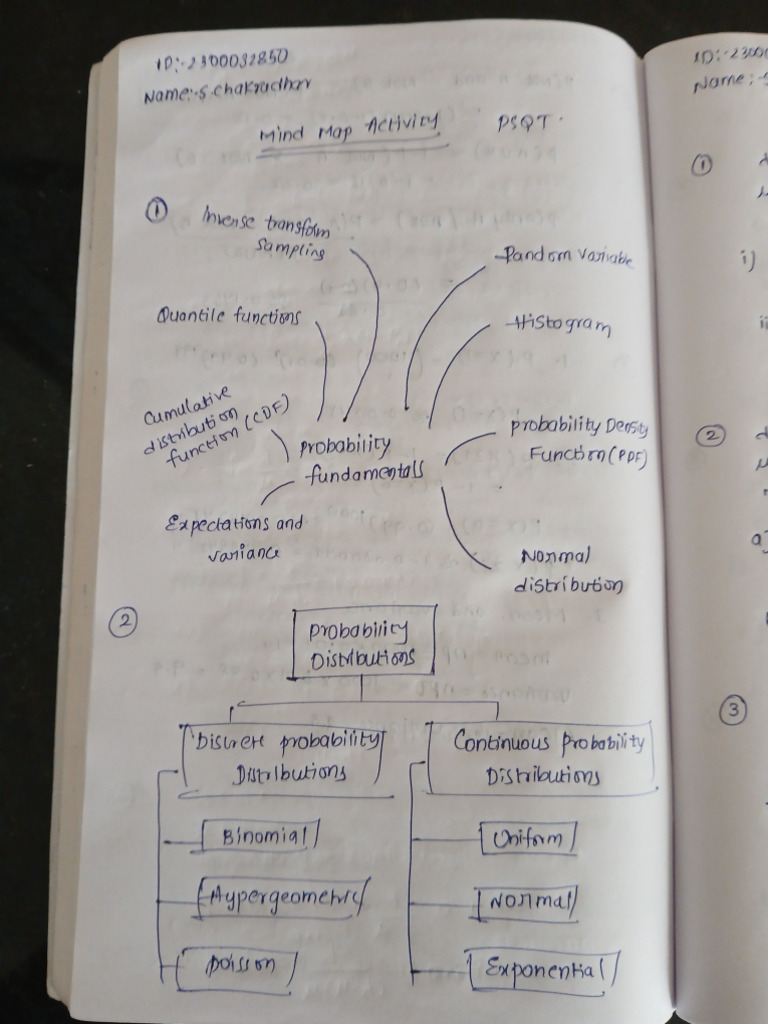 ID:-2300032850
Name:-S.chakradhar
Mind Map Activity PSQT.
①
Inverse transform
Sampling
Random Variable
Quantile functions
Histogram
Cumulative
distribution
function (CDF)
probability
fundamentals
probability Density
Function (PDF)
Expectations and
variance
Normal
distribution
②
Probability
Distributions
Discrete probability
Distributions
Continuous Probability
Distributions
Binomial
Uniform
Hypergeometric
Normal
Poisson
Exponential
ID:-2300
Name:-S
①
i)
ii
②
a)
③